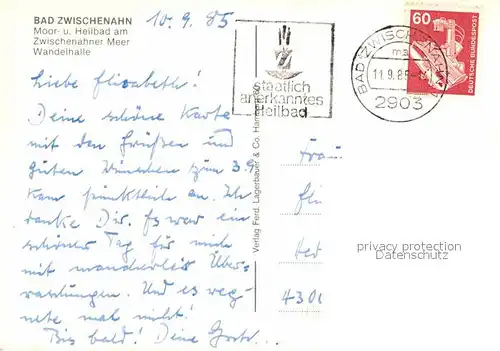 BAD ZWISCHENAHN
Moor- u. Heilbad am
Zwischenahner Meer
Wandelhalle
10.9.85
Liebe Elisabeth!
Deine schöne Karte
mit den Grüßen und
guten Wünschen zum 3.9.
kam pünktlich an. Ich
danke Dir. Es war ein
schöner Tag für mich
mit mancherlei Über-
raschungen. Und es reg-
nete mal nicht!
Bis bald! Deine
Verlag Ferd. Lagerbauer & Co.
staatlich
anerkanntes
Heilbad
BAD ZWISCHENAHN
11.9.85
2903
60
DEUTSCHE BUNDESPOST
Frau
privacy protection
Datenschutz